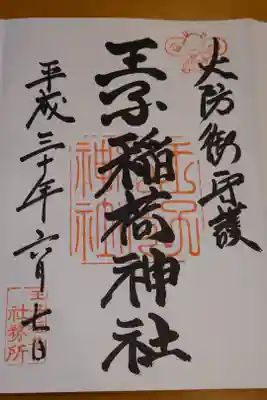 火防御守護
王子稲荷神社
平成三十年六月七日
王子
稲荷
神社
社務所